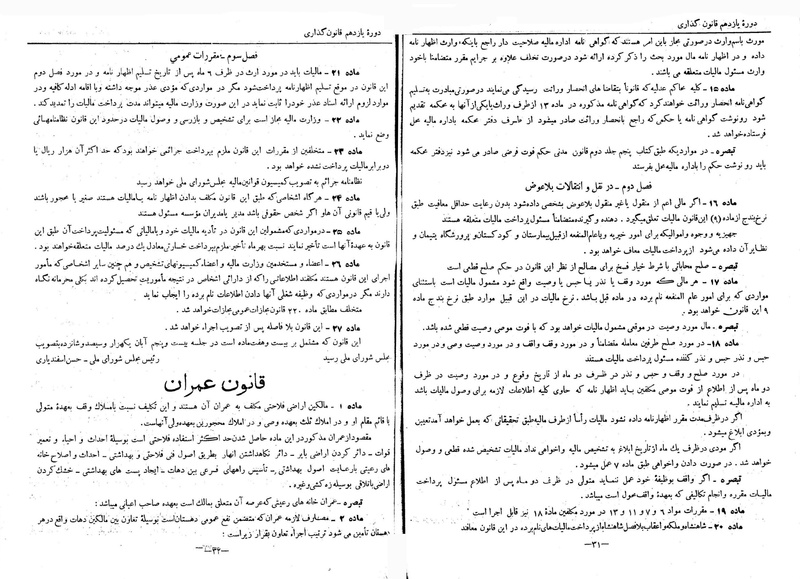 دورهٔ یازدهم قانون گذاری
مورث باسم وارث درصورتی مجاز باین امر هستند که گواهی نامه اداره مالیه صلاحیت دار راجع باینکه وارث اظهار نامه
داده و در اظهار نامه مال مورد بحث را ذکر کرده ارائه شود درصورت تخلف علاوه بر جرایم مقرر متضامناً باخود
وارث مسئول مالیات متعلقه می باشند .
ماده ۱۵- کلیه محاکم عدلیه که قانوناً بتقاضا های انحصار وراثت رسیدگی می نمایند درصورتی مبادرت به تسلیم
گواهی نامه انحصار وراثت خواهند کرد که گواهی نامه مذکوره در ماده ۱۳ از طرف وراث یا یکی از آنها به محکمه تقدیم
شود رونوشت گواهی نامه یا حکم که راجع بانحصار وراثت صادر میشود از طرف دفتر محکمه باداره مالیه محل
فرستاده خواهد شد .
تبصره - در مواردیکه طبق کتاب پنجم جلد دوم قانون مدنی حکم فوت فرضی صادر می شود نیز دفتر محکمه
باید رو نوشت حکم را باداره مالیه محل بفرستد
فصل دوم - در نقل و انتقالات بلاعوض
ماده ۱۶ - اگر مالی اعم از منقول یاغیر منقول بلاعوض بشخص داده شود بدون رعایت حداقل معافیت طبق
نرخ بندج از ماده (۹) این قانون مالیات تعلق میگیرد . دهنده و گیرنده متضامناً مسئول پرداخت مالیات متعلقه هستند
جهیزیه و وجوه و اموالیکه برای امور خیریه و یا عام المنفعه از قبیل بیمارستان و کودکستان و پرورشگاه یتیمان و
نظایر آن داده می شود از پرداخت مالیات معاف خواهد بود .
تبصره - صلح محاباتی با شرط خیار فسخ برای مصالح از نظر این قانون در حکم صلح قطعی است
ماده ۱۷ - هر مالی که مورد وقف یا نذر یا حبس یا وصیت واقع شود مشمول مالیات است باستثنای
مواردی که برای امور عام المنفعه نام برده در ماده قبل باشد . نرخ مالیات در این قبیل موارد طبق نرخ بندج ماده
۹ این قانون خواهد بود .
تبصره . مال مورد وصیت در موقعی مشمول مالیات خواهد بود که با فوت موصی وصیت قطعی شده باشد.
ماده ۱۸- در مورد صلح طرفین معامله متضامناً و در مورد وقف واقف و در مورد وصیت وصی و در مورد
حبس و نذر حبس و نذر کننده مسئول پرداخت مالیات هستند
در مورد صلح و وقف و حبس و نذر در ظرف دو ماه از تاریخ وقوع و در مورد وصیت در ظرف
دو ماه پس از اطلاع از فوت موصی مکلفین باید اظهار نامه که حاوی کلیه اطلاعات لازمه برای وصول مالیات باشد
به اداره مالیه تسلیم نمایند .
اگر در ظرف مدت مقرر اظهارنامه داده نشود مالیات رأساً از طرف مالیه طبق تحقیقاتی که بعمل خواهد آمد تعیین
و بمؤدی ابلاغ میشود .
اگر مودی در ظرف یك ماه از تاریخ ابلاغ به تشخیص مالیه و اخواهی نداد مالیات تشخیص شده قطعی و وصول
خواهد شد . در صورت دادن و اخواهی طبق ماده ۷ عمل میشود .
تبصره - اگر واقف بوظیفهٔ خود عمل ننماید متولی در ظرف دو ماه پس از اطلاع مسئول پرداخت
مالیات مقرره و انجام تکالیفی که بعهدهٔ واقف محول است میباشد .
ماده ۱۹ - مقررات مواد ۶ و ۷ و ۱۱ و ۱۳ در مورد مکلفین مادهٔ ۱۸ نیز قابل اجرا است
ماده ۲۰ - شاهنشاه و ملکه و اعقاب بلافصل شاهنشاه از پرداخت مالیات های نام برده در این قانون معافند
—۳۱—
دورهٔ یازدهم قانون گذاری
فصل سوم - مقررات عمومی
ماده ۲۱ - مالیات باید در مورد ارث در ظرف ۶ ماه پس از تاریخ تسلیم اظهار نامه و در مورد فصل دوم
این قانون در موقع تسلیم اظهارنامه پرداخت شود مگر در مواردی که مؤدی عذر موجه داشته و با اقامه ادله کافیه و در
موارد لزوم ارائه اسناد عذر خود را ثابت نماید در این صورت وزارت مالیه میتواند مدت پرداخت مالیات را تمدید کند.
ماده ۲۲ - وزارت مالیه مجاز است برای تشخیص و بازرسی و وصول مالیات در حدود این قانون نظامنامهائی
وضع نماید .
ماده ۲۳ - متخلفین از مقررات این قانون ملزم بپرداخت جرائمی خواهند بود که حد اکثر آن هزار ریال یا
دو برابر مالیات پرداخت نشده خواهد بود .
نظامنامه جرائم به تصویب کمیسیون قوانین مالیه مجلس شورای ملی خواهد رسید
ماده ۲۴ - هرگاه اشخاصی که طبق این قانون مکلف بدادن اظهار نامه یا مالیات هستند صغیر یا محجور باشند
ولی یا قیم قانونی آن ها و اگر شخص حقوقی باشد مدیر یا مدیران مؤسسه مسئول هستند
ماده ۲۵ - در مواردی که مشمولین این قانون در تأدیه مالیات خود و یا مالیاتی که مسئولیت پرداخت آن طبق این
قانون به عهدهٔ آنها است تأخیر نمایند نسبت بهر ماه تأخیر ملزم بپرداخت خسارتی معادل یك درصد مالیات متعلقه خواهند بود .
ماده ۲۶ - اعضاء و مستخدمین وزارت مالیه و اعضاء کمیسیونهای تشخیص و هم چنین سایر اشخاصی که مأمور
اجرای این قانون هستند مکلفند اطلاعاتی را که از دارائی اشخاص در نتیجه مأموریت تحصیل کرده اند بکلی محرمانه نگاه
دارند مگر در مواردی که وظیفه شغلی آنها دادن اطلاعات نام برده را ایجاب نماید
متخلف مطابق ماده ۲۲۰ قانون مجازات عمومی مجازات خواهد شد .
ماده ۲۷ - این قانون بلا فاصله پس از تصویب اجراء خواهد شد .
این قانون که مشتمل بر بیست و هفت ماده است در جلسه بیست و پنجم آبان یکهزار و سیصد و شانزده بتصویب
مجلس شورای ملی رسید رئیس مجلس شورای ملی - حسن اسفندیاری
قانون عمران
ماده ۱ - مالکین اراضی فلاحتی مکلف به عمران آن هستند و این تکلیف نسبت باملاك وقف بعهدهٔ متولی
یا قائم مقام او و در املاك ثلث بعهده وصی و در املاك محجورین بعهده ولی آنهاست.
مقصود از عمران مذکور در این ماده حاصل شدن حد اکثر استفاده فلاحتی است بوسیلهٔ احداث و احیاء و تعمیر
قنوات - دائر کردن اراضی بایر - دائر نگاهداشتن انهار بطریق اصول فنی فلاحتی و بهداشتی - احداث و اصلاح خانه
های رعیتی بارعایت اصول بهداشتی - تأسیس راههای فرعی بین دهات - ایجاد پست های بهداشتی - خشك کردن
اراضی باتلاقی بوسیله زه کشی و غیره .
تبصره - عمران خانه های رعیتی که عرصه آن متعلق بمالك است بعهده صاحب اعیانی میباشد :
ماده ۲ - مصارف لازمه عمران که متضمن نفع عمومی دهستان است بوسیلهٔ تعاون بین مالکین دهات واقع در هر
دهستان تأمین می شود ترتیب اجراء تعاون بقرار زیر است :
—۳۲—